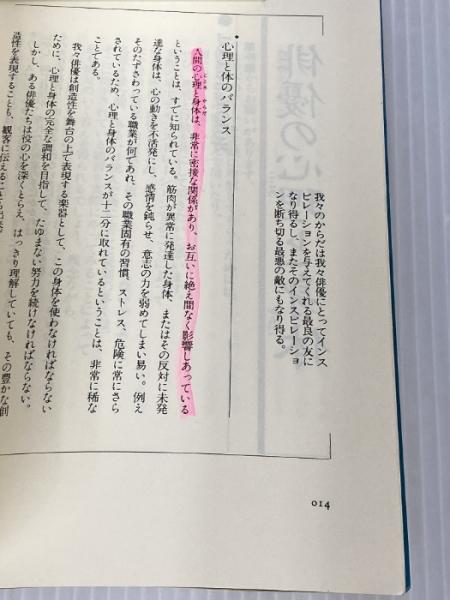 我々のからだは我々俳優にとってインス
ピレーションを与えてくれる最良の友に
なり得るし、またそのインスピレーショ
ンを断ち切る最悪の敵にもなり得る。
心理と体のバランス
人間の心理と身体は、非常に密接な関係があり、お互いに絶え間なく影響しあっている
ということは、すでに知られている。筋肉が異常に発達した身体、またはその反対に未発
達な身体は、心の動きを不活発にし、感情を鈍らせ、意志の力を弱めてしまい易い。例え
そのたずさわっている職業が何であれ、その職業固有の習慣、ストレス、危険に常にさら
されているため、心理と身体のバランスが十二分に取れているということは、非常に稀な
ことである。
我々俳優は創造性を舞台の上で表現する楽器として、この身体を使わなければならない
ために、心理と身体の完全な調和を目指して、たゆまない努力を続けなければならない。
しかし、ある俳優たちは役の心を深くとらえ、はっきり理解していても、その豊かな創
造性を表現することも、観客に伝えることも出来
014